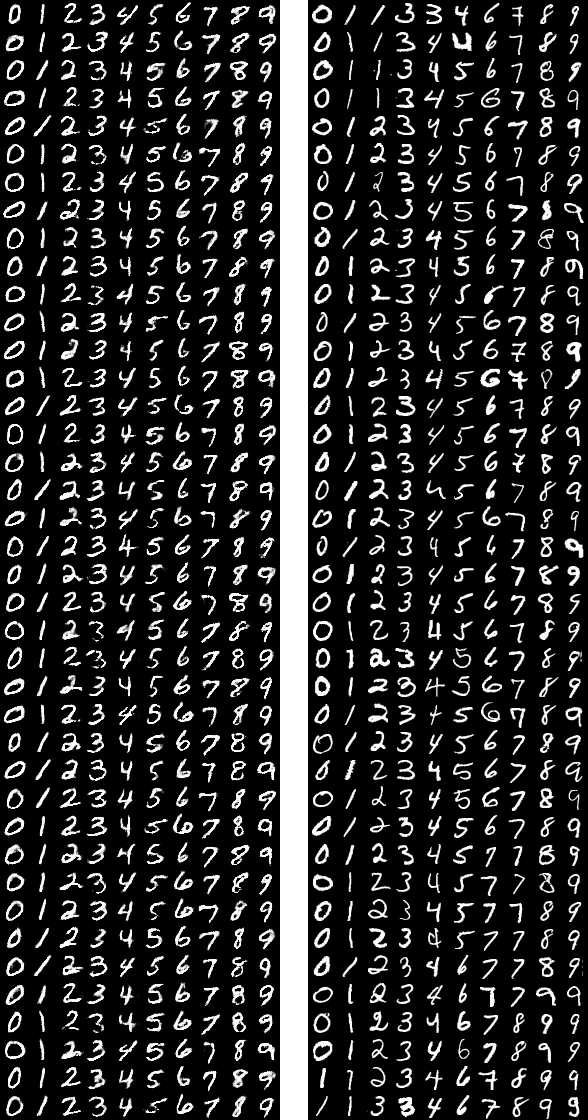 0 1 2 3 4 5 6 7 8 9 0 1 1 3 3 4 6 7 8 9
0 1 2 3 4 5 6 7 8 9 0 1 1 3 4 4 6 7 8 9
0 1 2 3 4 5 6 7 8 9 0 1 1 3 4 5 6 7 8 9
0 1 2 3 4 5 6 7 8 9 0 1 1 3 4 5 6 7 8 9
0 1 2 3 4 5 6 7 8 9 0 1 2 3 4 5 6 7 8 9
0 1 2 3 4 5 6 7 8 9 0 1 2 3 4 5 6 7 8 9
0 1 2 3 4 5 6 7 8 9 0 1 2 3 4 5 6 7 8 9
0 1 2 3 4 5 6 7 8 9 0 1 2 3 4 5 6 7 8 9
0 1 2 3 4 5 6 7 8 9 0 1 2 3 4 5 6 7 8 9
0 1 2 3 4 5 6 7 8 9 0 1 2 3 4 5 6 7 8 9
0 1 2 3 4 5 6 7 8 9 0 1 2 3 4 5 6 7 8 9
0 1 2 3 4 5 6 7 8 9 0 1 2 3 4 5 6 7 8 9
0 1 2 3 4 5 6 7 8 9 0 1 2 3 4 5 6 7 8 9
0 1 2 3 4 5 6 7 8 9 0 1 2 3 4 5 6 7 8 9
0 1 2 3 4 5 6 7 8 9 0 1 2 3 4 5 6 7 8 9
0 1 2 3 4 5 6 7 8 9 0 1 2 3 4 5 6 7 8 9
0 1 2 3 4 5 6 7 8 9 0 1 2 3 4 5 6 7 8 9
0 1 2 3 4 5 6 7 8 9 0 1 2 3 4 5 6 7 8 9
0 1 2 3 4 5 6 7 8 9 0 1 2 3 4 5 6 7 8 9
0 1 2 3 4 5 6 7 8 9 0 1 2 3 4 5 6 7 8 9
0 1 2 3 4 5 6 7 8 9 0 1 2 3 4 5 6 7 8 9
0 1 2 3 4 5 6 7 8 9 0 1 2 3 4 5 6 7 8 9
0 1 2 3 4 5 6 7 8 9 0 1 2 3 4 5 6 7 8 9
0 1 2 3 4 5 6 7 8 9 0 1 2 3 4 5 6 7 8 9
0 1 2 3 4 5 6 7 8 9 0 1 2 3 4 5 6 7 8 9
0 1 2 3 4 5 6 7 8 9 0 1 2 3 4 5 6 7 8 9
0 1 2 3 4 5 6 7 8 9 0 1 2 3 4 5 6 7 8 9
0 1 2 3 4 5 6 7 8 9 0 1 2 3 4 5 6 7 8 9
0 1 2 3 4 5 6 7 8 9 0 1 2 3 4 5 6 7 8 9
0 1 2 3 4 5 6 7 8 9 0 1 2 3 4 5 6 7 8 9
0 1 2 3 4 5 6 7 8 9 0 1 2 3 4 5 7 7 8 9
0 1 2 3 4 5 6 7 8 9 0 1 2 3 4 5 7 7 8 9
0 1 2 3 4 5 6 7 8 9 0 1 2 3 4 5 7 7 8 9
0 1 2 3 4 5 6 7 8 9 0 1 2 3 4 5 7 7 8 9
0 1 2 3 4 5 6 7 8 9 0 1 2 3 4 6 7 7 8 9
0 1 2 3 4 5 6 7 8 9 0 1 2 3 4 6 7 7 9 9
0 1 2 3 4 5 6 7 8 9 0 1 2 3 4 6 7 8 9 9
0 1 2 3 4 5 6 7 8 9 0 1 2 3 4 6 7 8 9 9
0 1 2 3 4 5 6 7 8 9 1 1 2 3 4 6 7 8 9 9
0 1 2 3 4 5 6 7 8 9 1 1 3 3 4 6 7 8 9 9